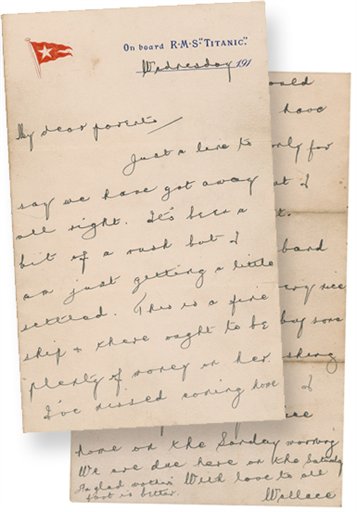 On board R·M·S "TITANIC".
Wednesday 191
My dear parents
Just a line to
say we have got away
all right. It's been a
bit of a rush but I
am just getting a little
settled. This is a fine
ship & there ought to be
plenty of money on her.
I've missed coming home
ould
have
only for
at I
t.
band
ery nice
shing
of
home on the Sunday morning
We are due here on the Saturday
glad mother's With love to all
foot is better.
Wallace